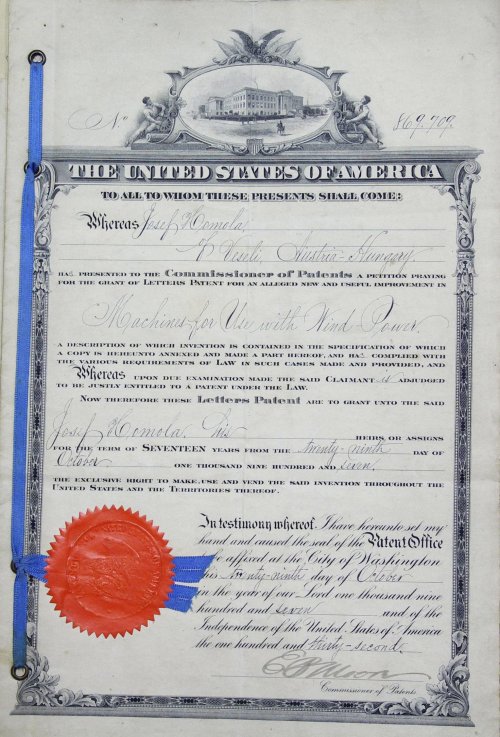 No. 869,709.
THE UNITED STATES OF AMERICA
TO ALL TO WHOM THESE PRESENTS SHALL COME:
Whereas Josef Homola,
of Veseli, Austria-Hungary,
HAS PRESENTED TO THE Commissioner of Patents A PETITION PRAYING
FOR THE GRANT OF LETTERS PATENT FOR AN ALLEGED NEW AND USEFUL IMPROVEMENT IN
Machines for Use with Wind-Power,
A DESCRIPTION OF WHICH INVENTION IS CONTAINED IN THE SPECIFICATION OF WHICH
A COPY IS HEREUNTO ANNEXED AND MADE A PART HEREOF, AND HAS COMPLIED WITH
THE VARIOUS REQUIREMENTS OF LAW IN SUCH CASES MADE AND PROVIDED, AND
Whereas UPON DUE EXAMINATION MADE THE SAID CLAIMANT is ADJUDGED
TO BE JUSTLY ENTITLED TO A PATENT UNDER THE LAW.
NOW THEREFORE THESE Letters Patent ARE TO GRANT UNTO THE SAID
Josef Homola, his HEIRS OR ASSIGNS
FOR THE TERM OF SEVENTEEN YEARS FROM THE twenty-ninth DAY OF
October ONE THOUSAND NINE HUNDRED AND seven,
THE EXCLUSIVE RIGHT TO MAKE, USE AND VEND THE SAID INVENTION THROUGHOUT THE
UNITED STATES AND THE TERRITORIES THEREOF.
In testimony whereof I have hereunto set my
hand and caused the seal of the Patent Office
to be affixed at the City of Washington
this twenty-ninth day of October
in the year of our Lord one thousand nine
hundred and seven and of the
Independence of the United States of America
the one hundred and thirty-second.
Commissioner of Patents